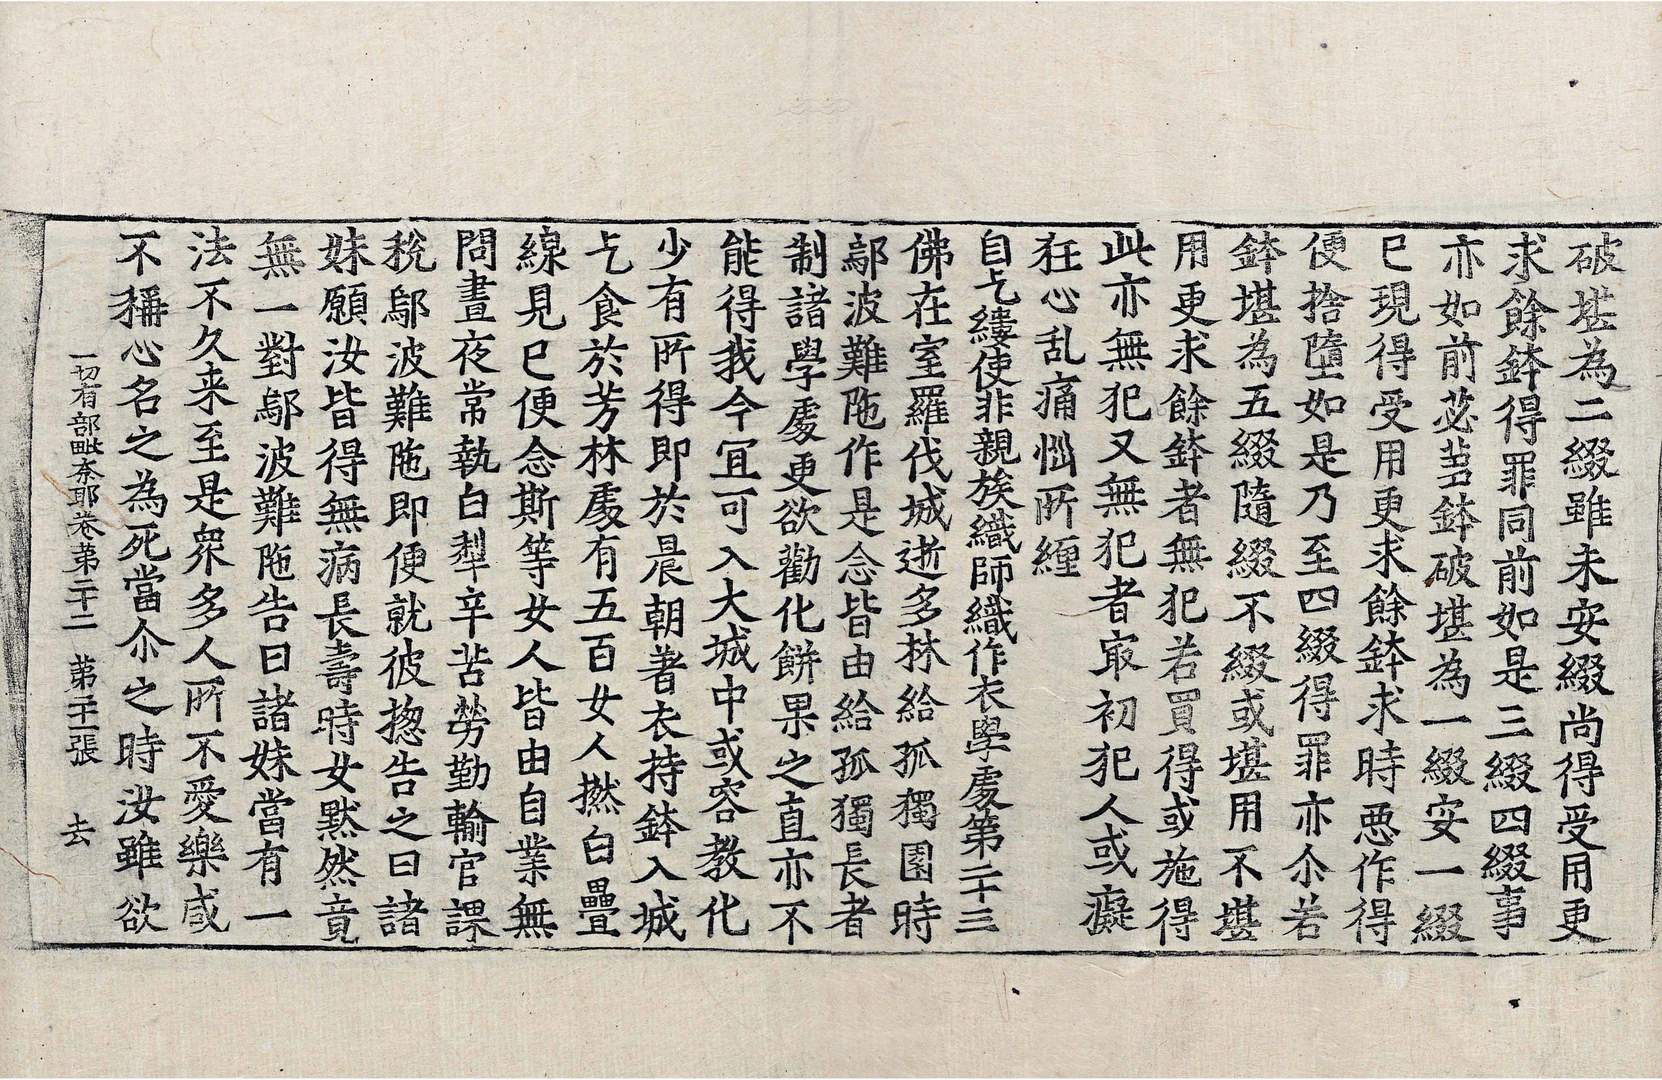 破堪為二綴雖未安綴尚得受用更
求餘鉢得罪同前如是三綴四綴事
亦如前苾芻鉢破堪為一綴安一綴
已現得受用更求餘鉢求時悪作得
便捨墮如是乃至四綴得罪亦尒若
鉢堪為五綴隨綴不綴或堪用不堪
用更求餘鉢者無犯若買得或施得
此亦無犯又無犯者㝡初犯人或癡
狂心乱痛惱所纏
自乞縷使非親族織師織作衣學處第二十三
佛在室羅伐城逝多林給孤獨園時
鄔波難陁作是念皆由給孤獨長者
制諸學處更欲勸化餅果之直亦不
能得我今冝可入大城中或容教化
少有所得即於晨朝著衣持鉢入城
乞食於芳林處有五百女人撚白疊
線見已便念斯等女人皆由自業無
問晝夜常執白㲠辛苦勞勤輸官課
稅鄔波難陁即便就彼揔告之曰諸
妹願汝皆得無病長壽時女默然竟
無一對鄔波難陁告曰諸妹當有一
法不久来至是衆多人所不愛樂咸
不稱心名之為死當尒之時汝雖欲
一切有部毗奈耶卷第二十二　第二十二張　去